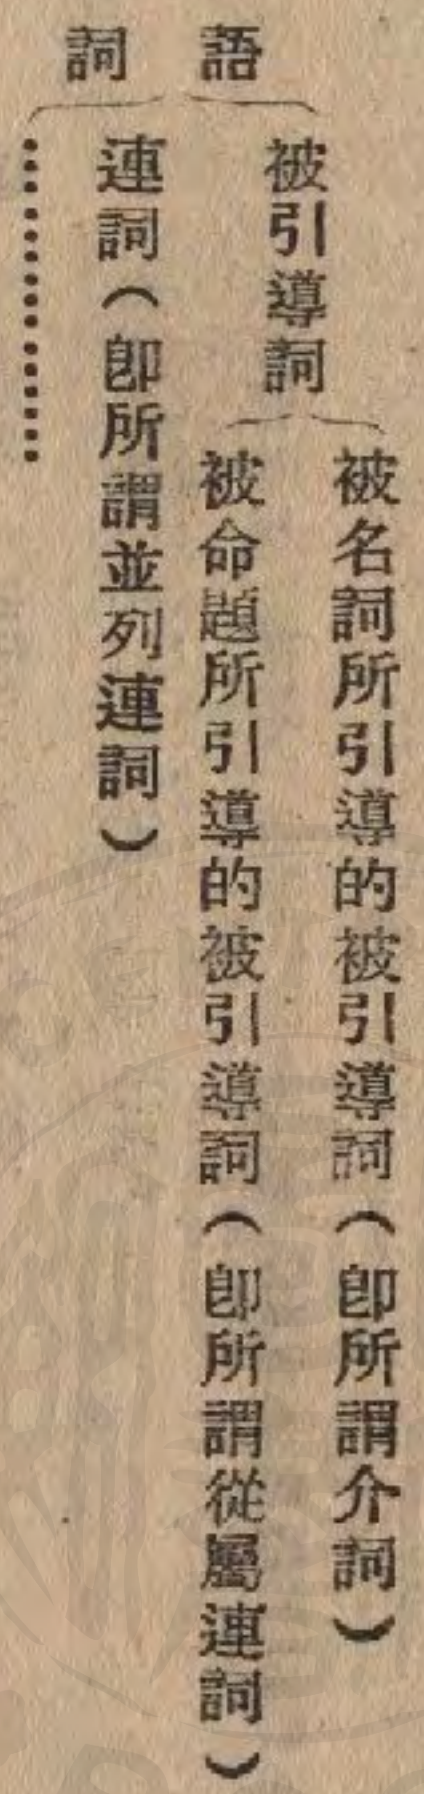 語詞
被引導詞
被名詞所引導的被引導詞（卽所謂介詞）
被命題所引導的被引導詞（卽所謂從屬連詞）
連詞（卽所謂並列連詞）
……………